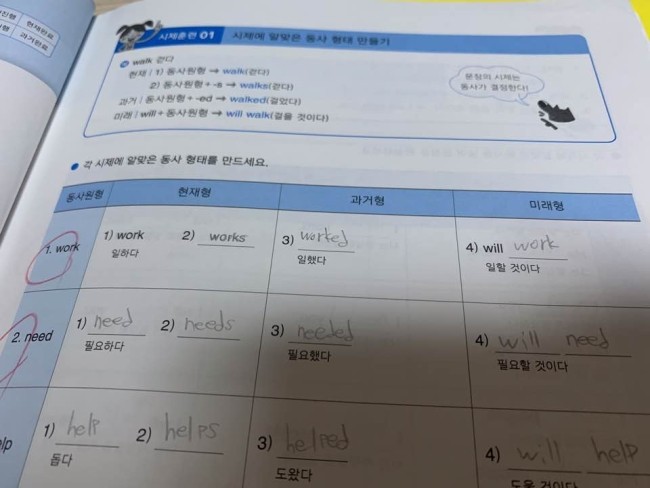 현재완료
과거완료
시제훈련 01 시제에 알맞은 동사 형태 만들기
walk 걷다
현재 | 1) 동사원형 → walk(걷다)
2) 동사원형 + -s → walks(걷다)
과거 | 동사원형 + -ed → walked(걸었다)
미래 | will + 동사원형 → will walk(걸을 것이다)
문장의 시제는
동사가 결정한다!
각 시제에 알맞은 동사 형태를 만드세요.
동사원형 현재형 과거형 미래형
1. work 1) work 2) works 3) worked 4) will work
일하다 일했다 일할 것이다
2. need 1) need 2) needs 3) needed 4) will need
필요하다 필요했다 필요할 것이다
1) help 2) helps 3) helped 4) will help
돕다 도왔다 도울 것이다